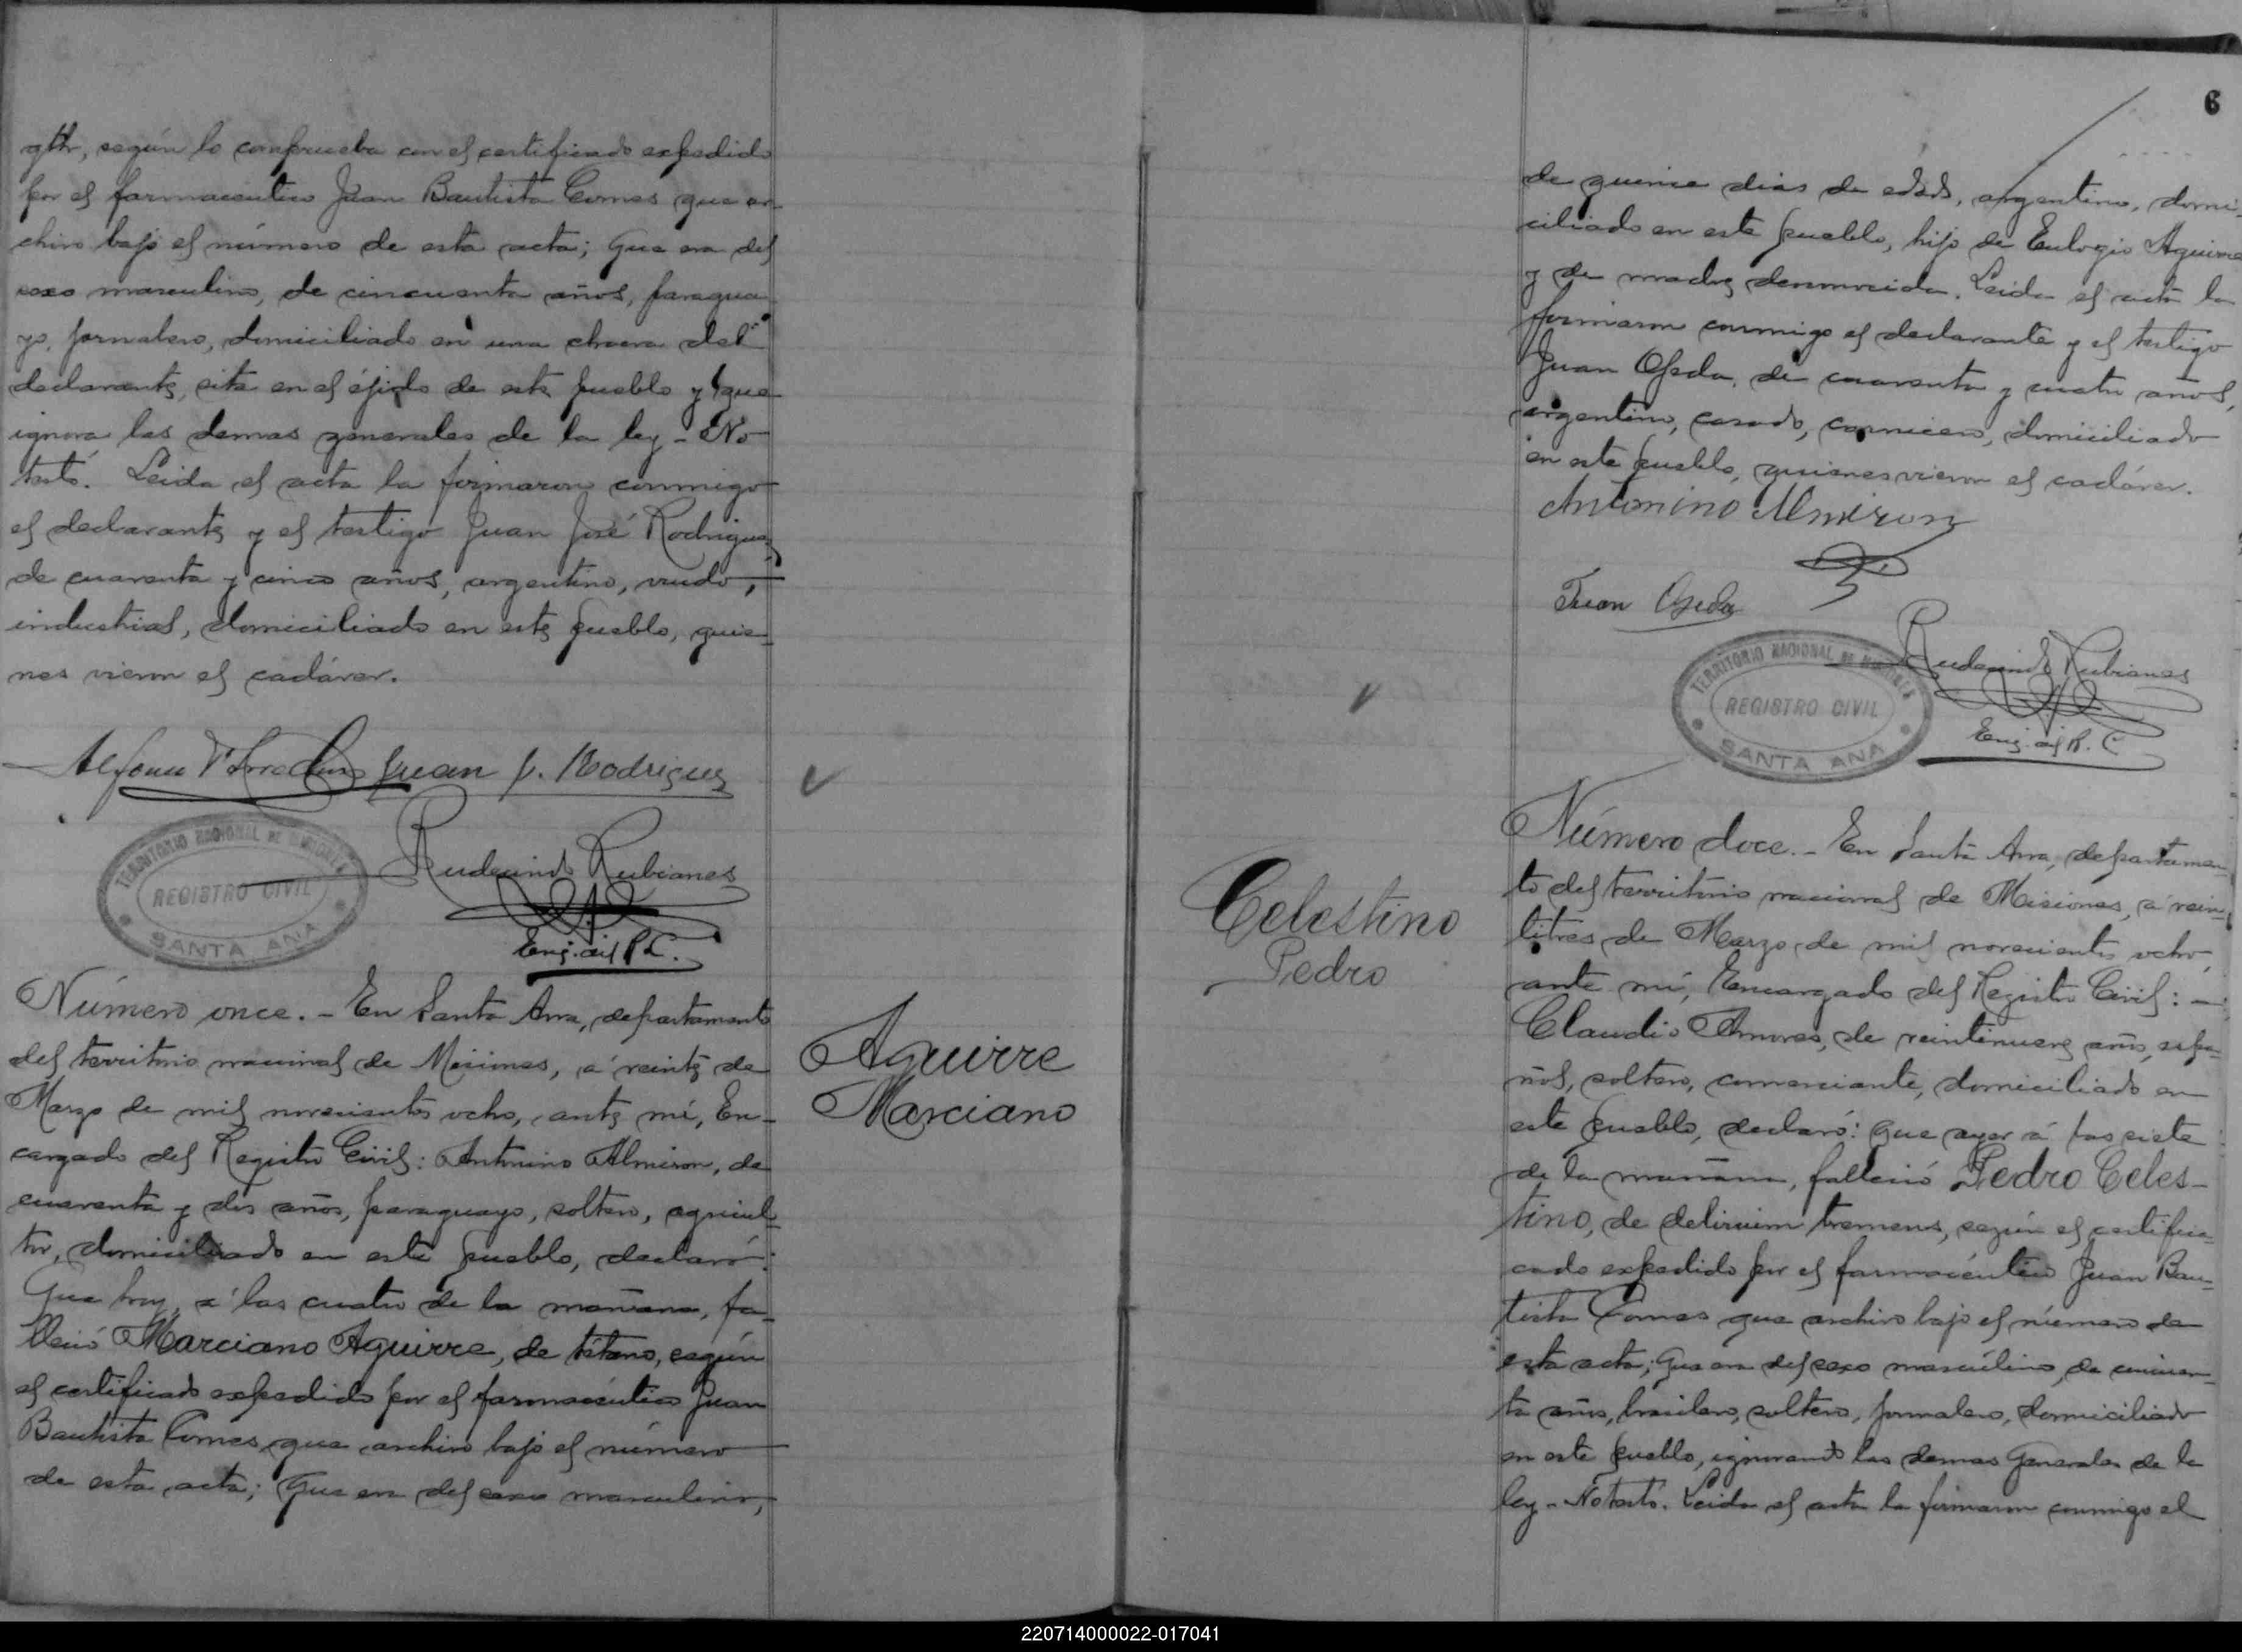 según lo comprueba con el certificado expedido
por el farmaceutico Juan Bautista Comes que ar-
chivo bajo el número de esta acta; Que era del
sexo masculino, de cincuenta años, paragua-
yo, jornalero, domiciliado en una chacra del
declarante, sita en el éjido de este pueblo y que
ignora las demas generales de la ley - No
testó. Leida el acta la firmaron conmigo
el declarante y el testigo Juan José Rodriguez
de cuarenta y cinco años, argentino, viudo,
industrial, domiciliado en este pueblo, quie-
nes vieron el cadáver.
Juan J. Rodriguez
TERRITORIO NACIONAL DE MISIONES
REGISTRO CIVIL
SANTA ANA
Rudecindo Rubianes
Enc. del R. C.
Número once. - En Santa Ana, departamento
del territorio nacional de Misiones, á veinte de
Marzo de mil novecientos ocho, ante mí, En-
cargado del Registro Civil: Antonino Almiron, de
cuarenta y dos años, paraguayo, soltero, agricul-
tor, domiciliado en este pueblo, declaró:
Que hoy, á las cuatro de la mañana, fa-
lleció Marciano Aguirre, de tétano, según
el certificado expedido por el farmacéutico Juan
Bautista Comes que archivo bajo el número
de esta acta; Que era del sexo masculino,
Aguirre
Marciano
6
de quince dias de edad, argentino, domi-
ciliado en este pueblo, hijo de Eulogio Aguirre
y de madre desconocida. Leida el acta la
firmaron conmigo el declarante y el testigo
Juan Ojeda, de cuarenta y cuatro años,
argentino, casado, carnicero, domiciliado
en este pueblo, quienes vieron el cadáver.
Antonino Almiron
Juan Ojeda
TERRITORIO NACIONAL DE MISIONES
REGISTRO CIVIL
SANTA ANA
Rudecindo Rubianes
Enc. del R. C
Celestino
Pedro
Número doce. - En Santa Ana, departamen-
to del territorio nacional de Misiones, á vein-
titres de Marzo de mil novecientos ocho,
ante mí, Encargado del Registro Civil: -
Claudio Amores, de veintinueve años, espa-
ñol, soltero, comerciante, domiciliado en
este pueblo, declaró: Que ayer á las siete
de la mañana, falleció Pedro Celes-
tino, de delirium tremens, según el certifi-
cado expedido por el farmacéutico Juan Bau-
tista Comes que archivo bajo el número de
esta acta; Que era del sexo masculino, de cincuen-
ta años, brasilero, soltero, jornalero, domiciliado
en este pueblo, ignorando las demas generales de la
ley - No testó. Leida el acta la firmaron conmigo el
220714000022-017041